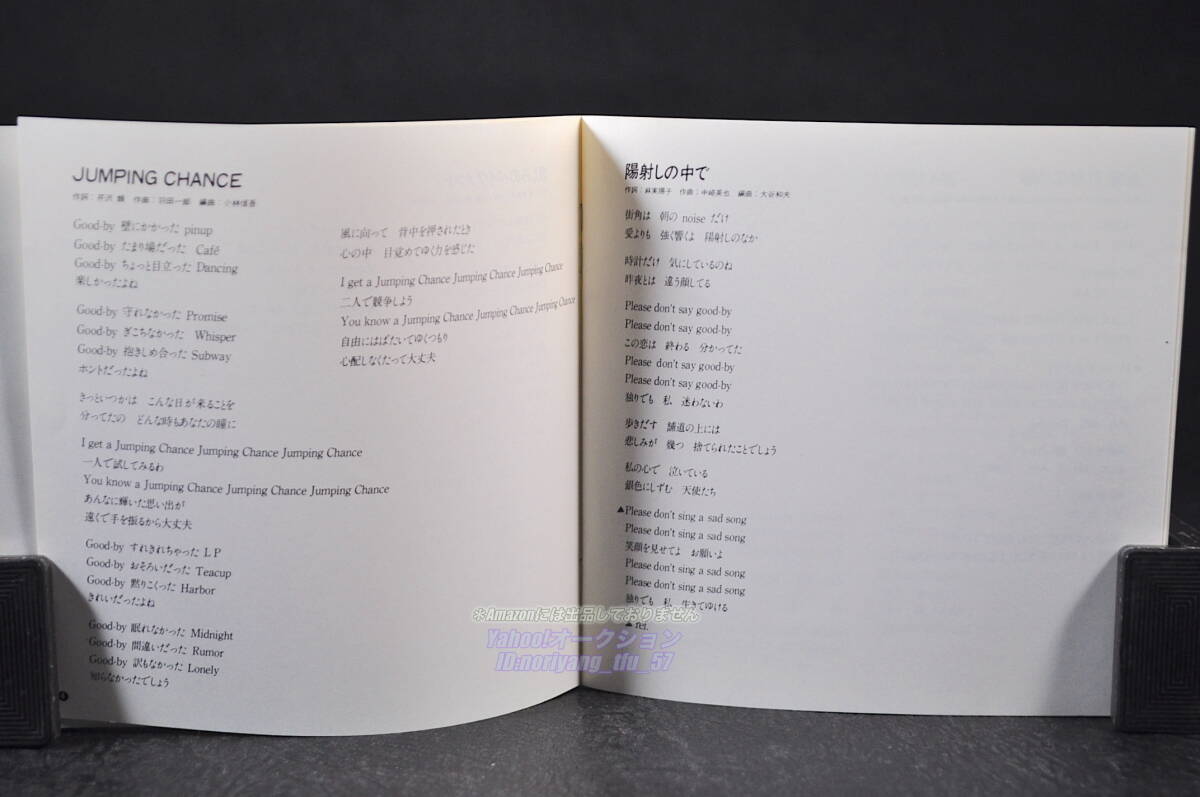 JUMPING CHANCE
作詞：芹沢 類　作曲：羽田一郎　編曲：小林信吾
Good-by 壁にかかった pinup
Good-by たまり場だった Café
Good-by ちょっと目立った Dancing
楽しかったよね
Good-by 守れなかった Promise
Good-by ぎこちなかった Whisper
Good-by 抱きしめ合った Subway
ホントだったよね
きっといつかは こんな日が来ることを
分ってたの どんな時もあなたの瞳に
I get a Jumping Chance Jumping Chance Jumping Chance
一人で試してみるわ
You know a Jumping Chance Jumping Chance Jumping Chance
あんなに輝いた思い出が
遠くで手を振るから大丈夫
Good-by すれきれちゃった LP
Good-by おそろいだった Teacup
Good-by 黙りこくった Harbor
きれいだったよね
Good-by 眠れなかった Midnight
Good-by 間違いだった Rumor
Good-by 訳もなかった Lonely
知らなかったでしょう
4
風に向って 背中を押されたとき
心の中 目覚めてゆく力を感じた
I get a Jumping Chance Jumping Chance Jumping Chance
二人で競争しよう
You know a Jumping Chance Jumping Chance Jumping Chance
自由にはばたいてゆくつもり
心配しなくたって大丈夫
陽射しの中で
作詞：麻木陽子　作曲：中崎英也　編曲：大谷和夫
街角は 朝の noise だけ
愛よりも 強く響くよ 陽射しのなか
時計だけ 気にしているのね
昨夜とは 違う顔してる
Please don't say good-by
Please don't say good-by
この恋は 終わる 分かってた
Please don't say good-by
Please don't say good-by
独りでも 私 迷わないわ
歩きだす 舗道の上には
悲しみが 幾つ 捨てられたことでしょう
私の心で 泣いている
銀色にしずむ 天使たち
▲Please don't sing a sad song
Please don't sing a sad song
笑顔を見せてよ お願いよ
Please don't sing a sad song
Please don't sing a sad song
独りでも 私 生きてゆける
▲ ref.
※Amazonには出品しておりません
Yahoo!オークション
ID:noriyang_tfu_57